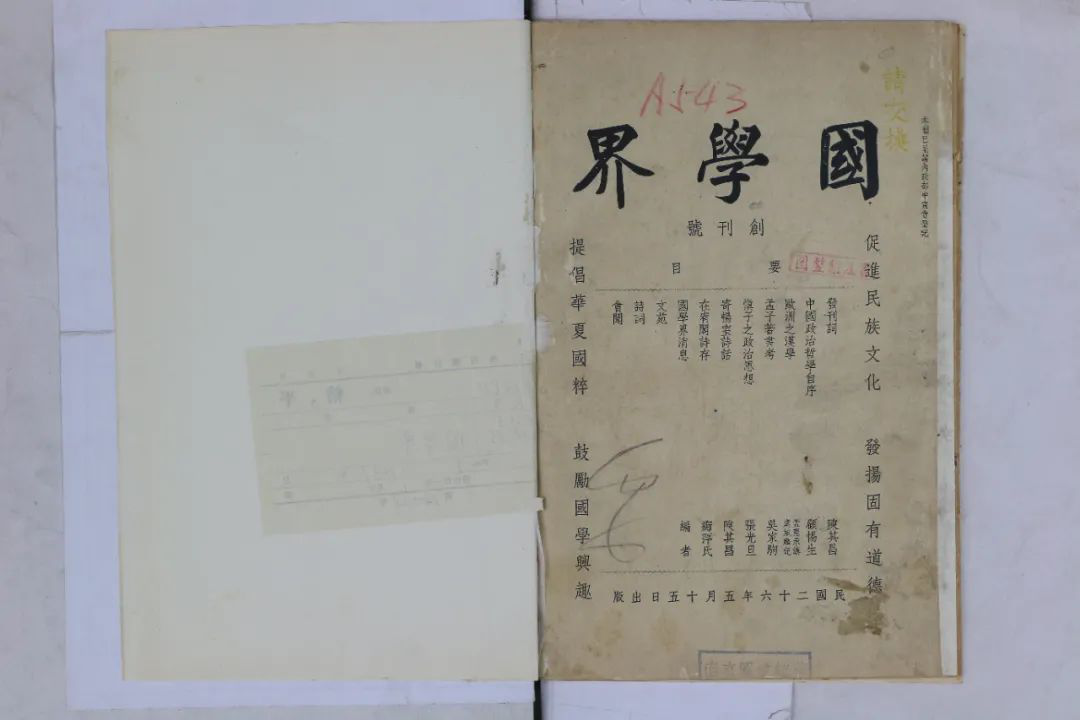 A543
請交換
國學界
創刊號
促進民族文化　發揚固有道德
要目
發刊詞　陳其昌
中國政治哲學自序　顧惕生
歐洲之漢學
孟子著書考　吳家駒
慎子之政治思想　張光旦
寄暢室詩話　陳其昌
在宥閣詩存
國學界消息　編者
文苑
詩詞
會聞
提倡華夏國粹　鼓勵國學興趣
民國二十六年五月十五日出版